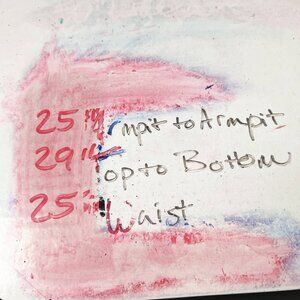 25" Armpit to Armpit
29" Top to Bottom
25" Waist